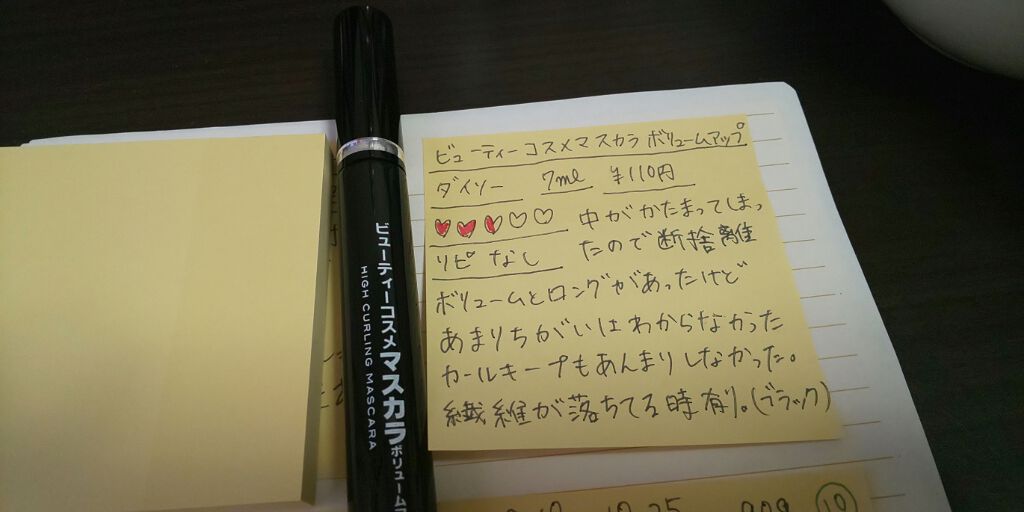 ビューティーコスメマスカラ ボリュームアップ
ダイソー 7ml ¥110円
中がかたまってしまっ
たので断捨離
リピ なし
ボリュームとロングがあったけど
あまりちがいはわからなかった
カールキープもあんまりしなかった。
繊維が落ちてる時有り。(ブラック)
ビューティーコスメマスカラボリューム
HIGH CURLING MASCARA